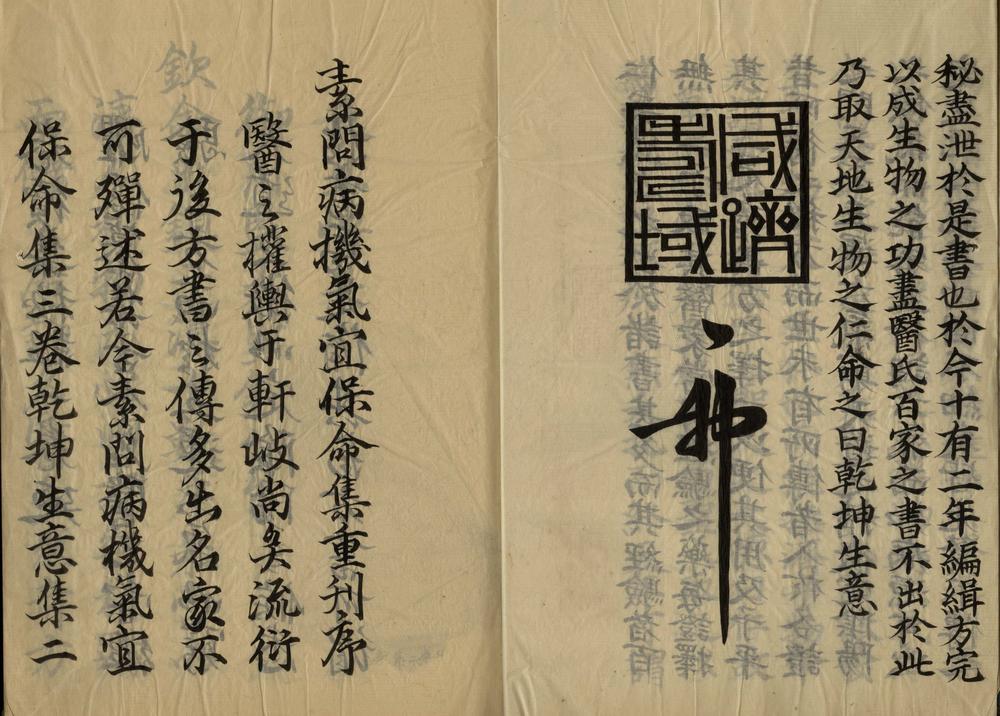 秘盡泄於是書也於今十有二年編緝方完
以成生物之功盡醫氏百家之書不出於此
乃取天地生物之仁命之曰乾坤生意
咸躋壽域
素問病機氣宜保命集重刊序
醫之權輿于軒岐尚矣流衍
于後方書之傳多出名家不
可殫述若今素問病機氣宜
保命集三卷乾坤生意集二